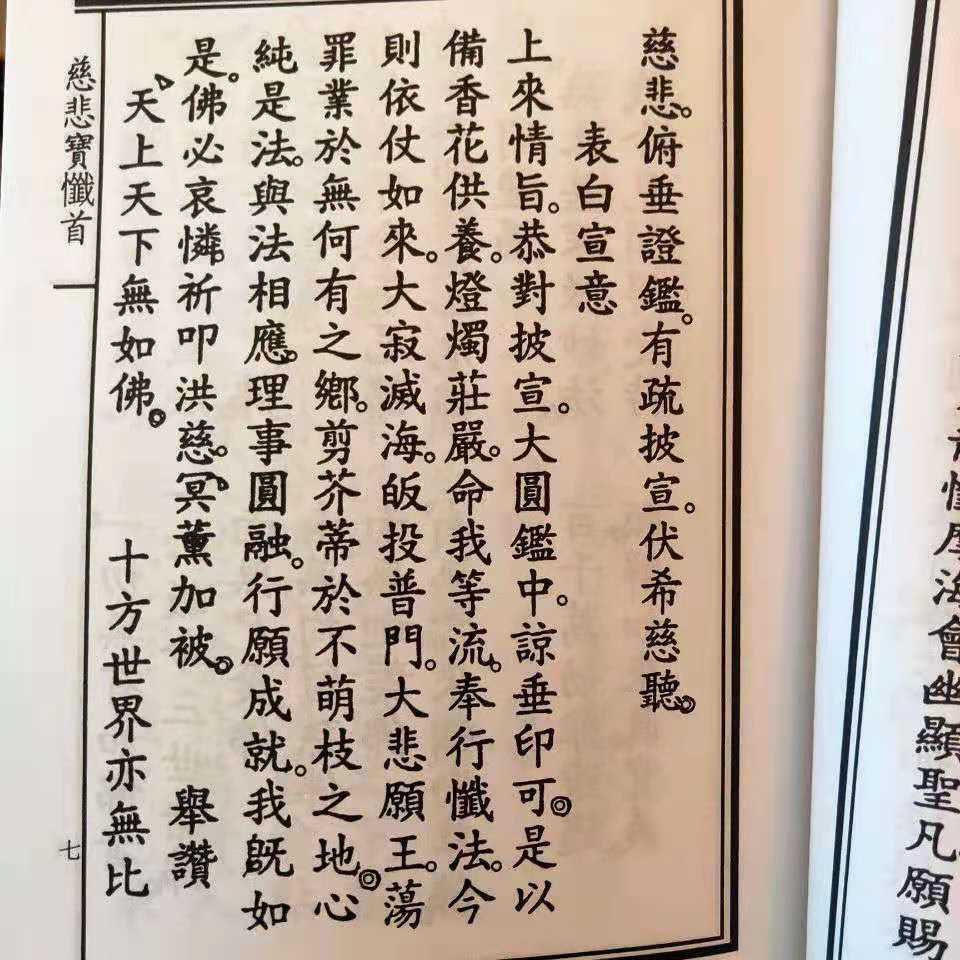 慈悲。俯垂證鑑。有疏披宣。伏希慈聽。
表白宣意
上來情旨。恭對披宣。大圓鑑中。諒垂印可◎是以
備香花供養。燈燭莊嚴。命我等流。奉行懺法。今
則依仗如來。大寂滅海。皈投普門。大悲願王。蕩
罪業於無何有之鄉。剪芥蒂於不萌枝之地◎心
純是法。與法相應。理事圓融。行願成就。我既如
是。佛必哀憐。祈叩洪慈。冥薰加被。 舉讚
天上天下無如佛。 十方世界亦無比
慈悲寶懺首
七
海會幽顯聖凡願賜